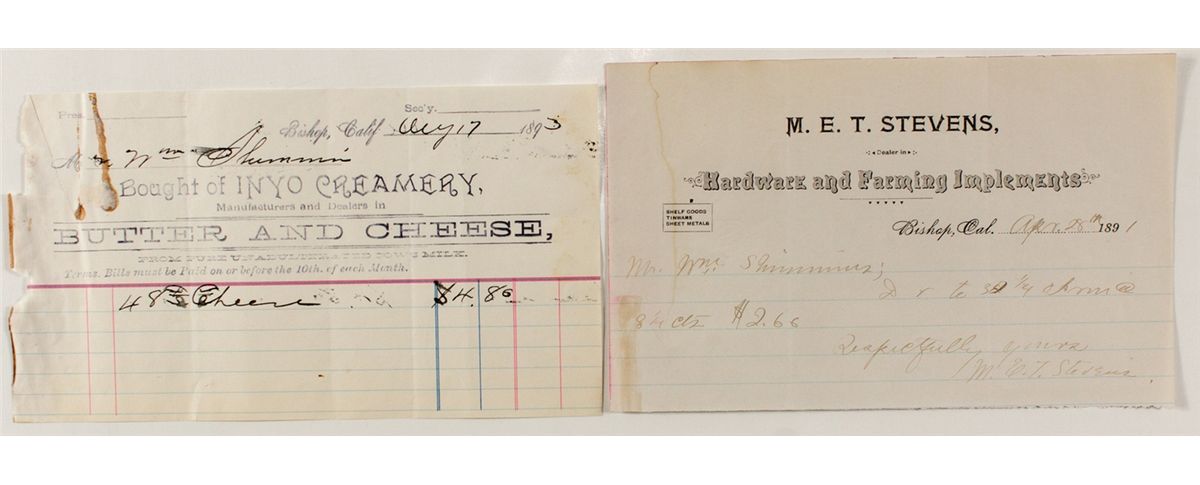 Pres. Sec'y.
Bishop, Calif. Aug 17 1893
M Wm Shimmin
Bought of INYO CREAMERY,
Manufacturers and Dealers in
BUTTER AND CHEESE,
FROM PURE UNADULTERATED COW'S MILK.
Terms. Bills must be Paid on or before the 10th. of each Month.
48 Cheese $4.80
M. E. T. STEVENS,
Dealer in
Hardware and Farming Implements
SHELF GOODS
TINWARE
SHEET METALS
Bishop, Cal. Apr. 28th 1891
Mr. Wm. Shimmins;
D r to
8¼ cts $2.66
Respectfully yours
M. E. T. Stevens.